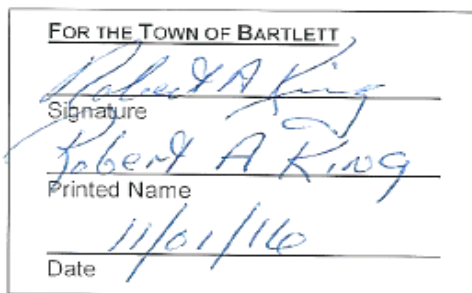 FOR THE TOWN OF BARTLETT
Robert A King
Signature
Robert A King
Printed Name
11/01/16
Date